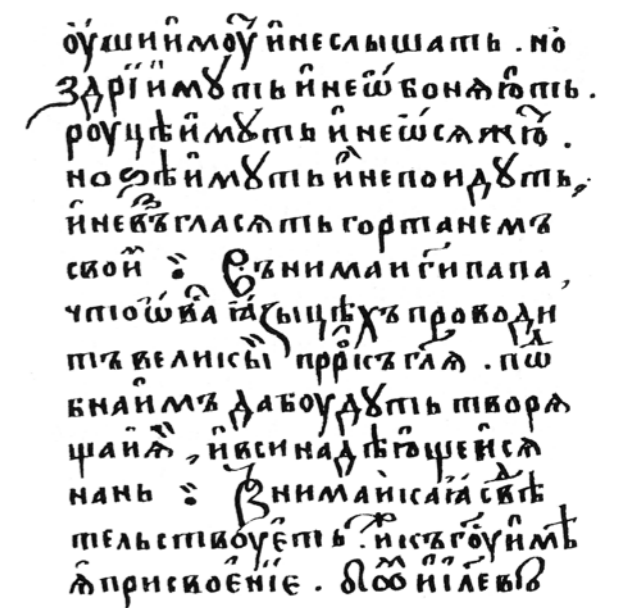 оу҆ши и҆моу҆ и҆неслышать . но
здрїи и҆мꙋть и҆неѡ҆боняю҆ть .
роуцѣ и҆мꙋть и҆неѡ҆сяжю҆ .
нозѣ и҆мꙋть и҆непоидꙋть,
и҆невъгласять гортанемъ
свои҆ Вънимаи ги папа ,
что ѡ ва ꙗ҆зыцѣхъ проводи
тъ великы҆ пррⷪ҇къ гл҃я . пѡⷣ
бна и҆мъ да боудꙋть творя
щаи ѧ҆ , и҆вси надѣю҆щеи҆ся
нань Внимаи҆ каꙗ҆ свⷣѣ
тельствоуе҆ть . и҆ къ гоу и҆мѣ
присвое҆нїе .